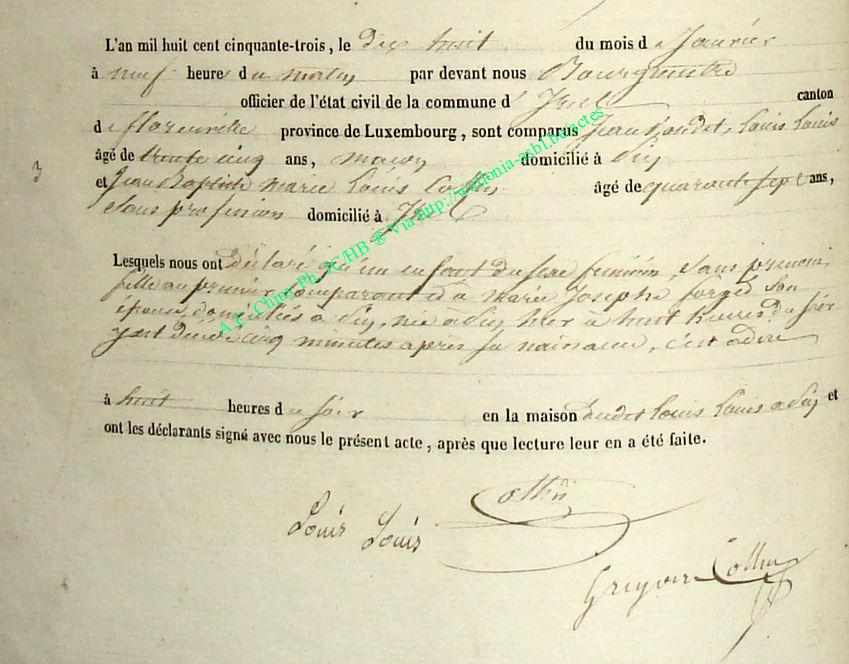 L'an mil huit cent cinquante-trois, le dix huit du mois de Janvier
à neuf heures du matin par devant nous Bourgmestre
officier de l'état civil de la commune d' Izel canton
de florenville province de Luxembourg, sont comparus Jean Louis Louis
âgé de trente cinq ans, domicilié à
3
et Jean Baptiste Marie Louis Collin âgé de quarante sept ans,
sans profession domicilié à Izel
Lesquels nous ont déclaré qu'un enfant du sexe féminin, sans prénom
fille au premier comparant et à Marie Josephe forget son
épouse, domiciliés à née à hier à huit heures du soir
y est cinq minutes après sa naissance, c'est adire
à huit heures du soir en la maison dudit Louis Louis a et
ont les déclarants signé avec nous le présent acte, après que lecture leur en a été faite.
Collin
Louis Louis
Collin
A.E. Chiny Ph. JCHB ® Via http://wallonia-asbl.be/actes